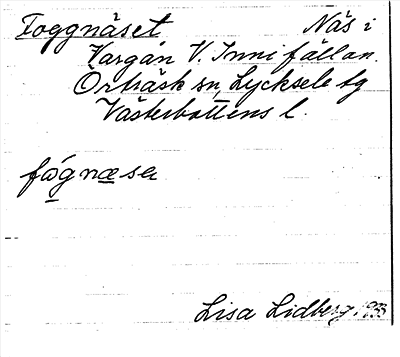 Foggnäset Näs i
Vargån V. Innifällan.
Örträsk sn, Lycksele tg
Västerbottens l.
fǻgnæsa
Lisa Lidberg, 1933